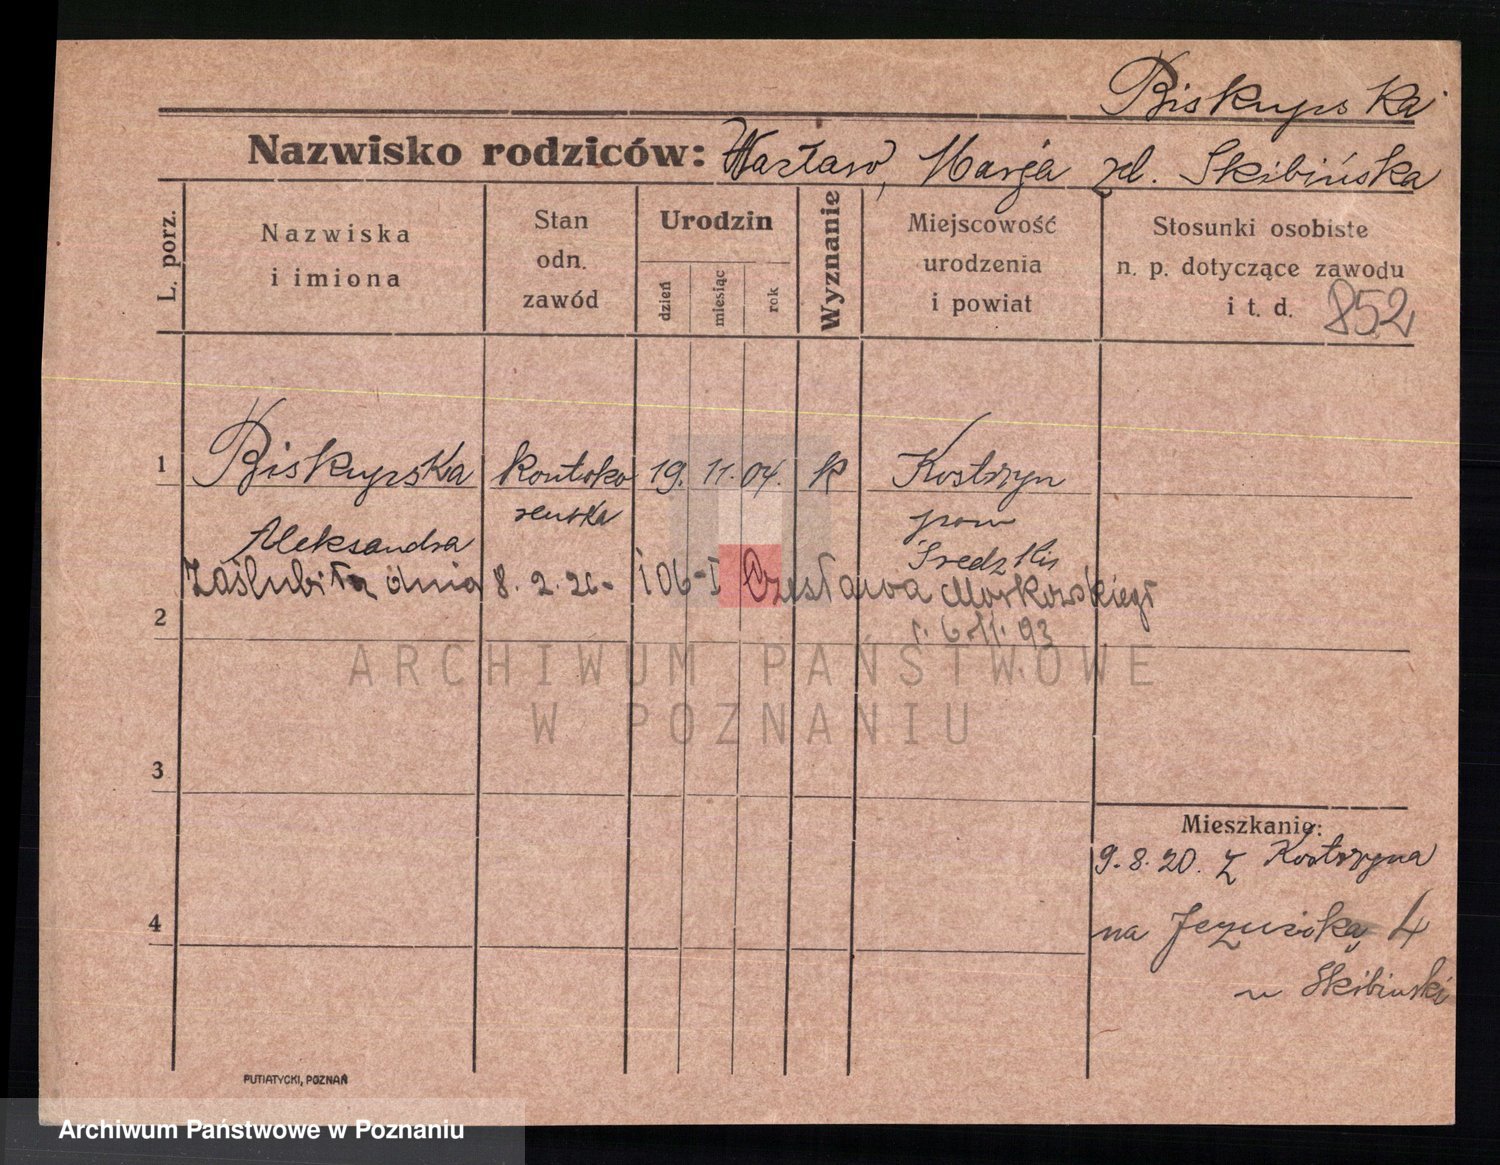 Biskupska
Nazwisko rodziców: Wacław, Marja zd. Skibińska
L. porz.
Nazwiska
i imiona
Stan
odn.
zawód
Urodzin
dzień
miesiąc
rok
Wyznanie
Miejscowość
urodzenia
i powiat
Stosunki osobiste
n. p. dotyczące zawodu
i t. d.
852
1
Biskupska
kontoko
19. 11. 04.
k
Kostrzyn
renska
pow
Aleksandra
Średzki
Zaślubiła dnia 8. 2. 26- Czesława Morkowskiego
2
r. 6.11.93
ARCHIWUM PAŃSTWOWE
W POZNANIU
3
Mieszkanie:
9.8.20. z Kostrzyna
4
na Jezuicką 4
u Skibinski
PUTIATYCKI, POZNAŃ
Archiwum Państwowe w Poznaniu